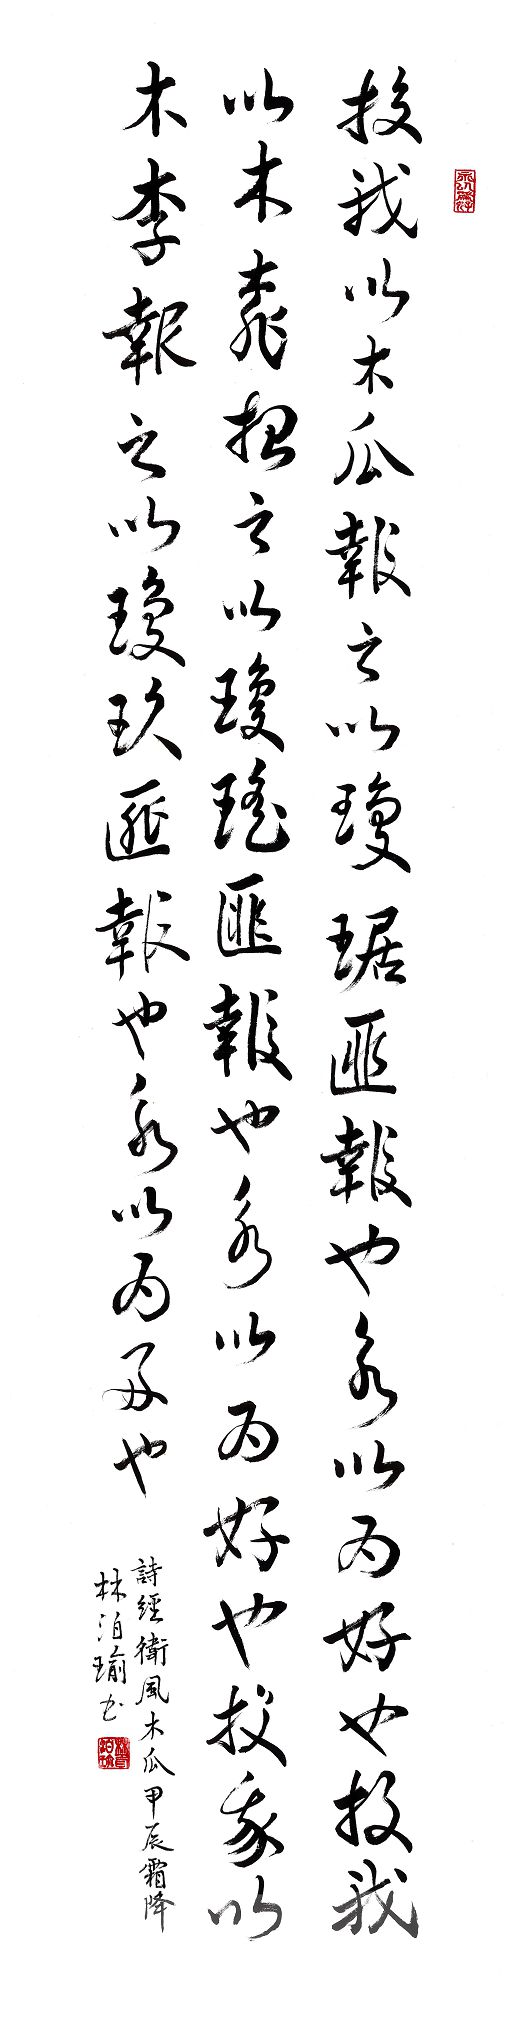 投我以木瓜報之以瓊琚匪報也永以為好也投我
以木桃報之以瓊瑤匪報也永以為好也投我以
木李報之以瓊玖匪報也永以為好也
詩經衛風木瓜甲辰霜降
林泊瑜书